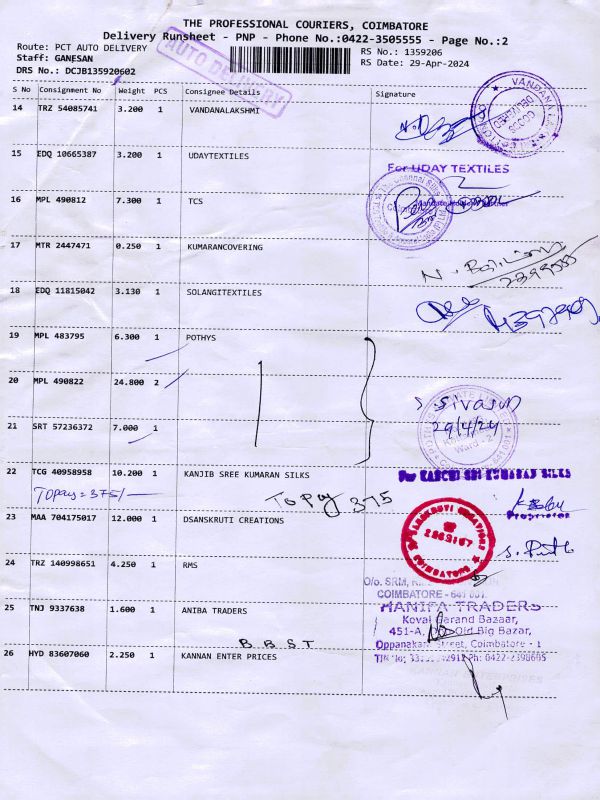 THE PROFESSIONAL COURIERS, COIMBATORE
Delivery Runsheet - PNP - Phone No.:0422-3505555 - Page No.:2
Route: PCT AUTO DELIVERY
RS No.: 1359206
Staff: GANESAN
RS Date: 29-Apr-2024
DRS No.: DCJB135920602
AUTO DELIVERY
S No Consignment No Weight PCS Consignee Details Signature
14 TRZ 54085741 3.200 1 VANDANALAKSHMI
15 EDQ 10665387 3.200 1 UDAYTEXTILES
For UDAY TEXTILES
16 MPL 490812 7.300 1 TCS
17 MTR 2447471 0.250 1 KUMARANCOVERING
18 EDQ 11815042 3.130 1 SOLANGITEXTILES
19 MPL 483795 6.300 1 POTHYS
20 MPL 490822 24.800 2
S Sivasun
29/4/24
21 SRT 57236372 7.000 1
22 TCG 40958958 10.200 1 KANJIB SREE KUMARAN SILKS
For KANCHI SRI KUMARAN SILKS
Topay = 375/-
To Pay 375
Proprietor
23 MAA 704175017 12.000 1 DSANSKRUTI CREATIONS
COIMBATORE
24 TRZ 140998651 4.250 1 RMS
COIMBATORE - 641 001.
25 TNJ 9337638 1.600 1 ANIBA TRADERS
HANIFA TRADERS
Koval Garand Bazaar,
451-A, Old Big Bazar,
Oppanakara Street, Coimbatore - 1
Ph: 0422-2398605
B B S T
26 HYD 83607060 2.250 1 KANNAN ENTER PRICES
KANNAN ENTERPRISES